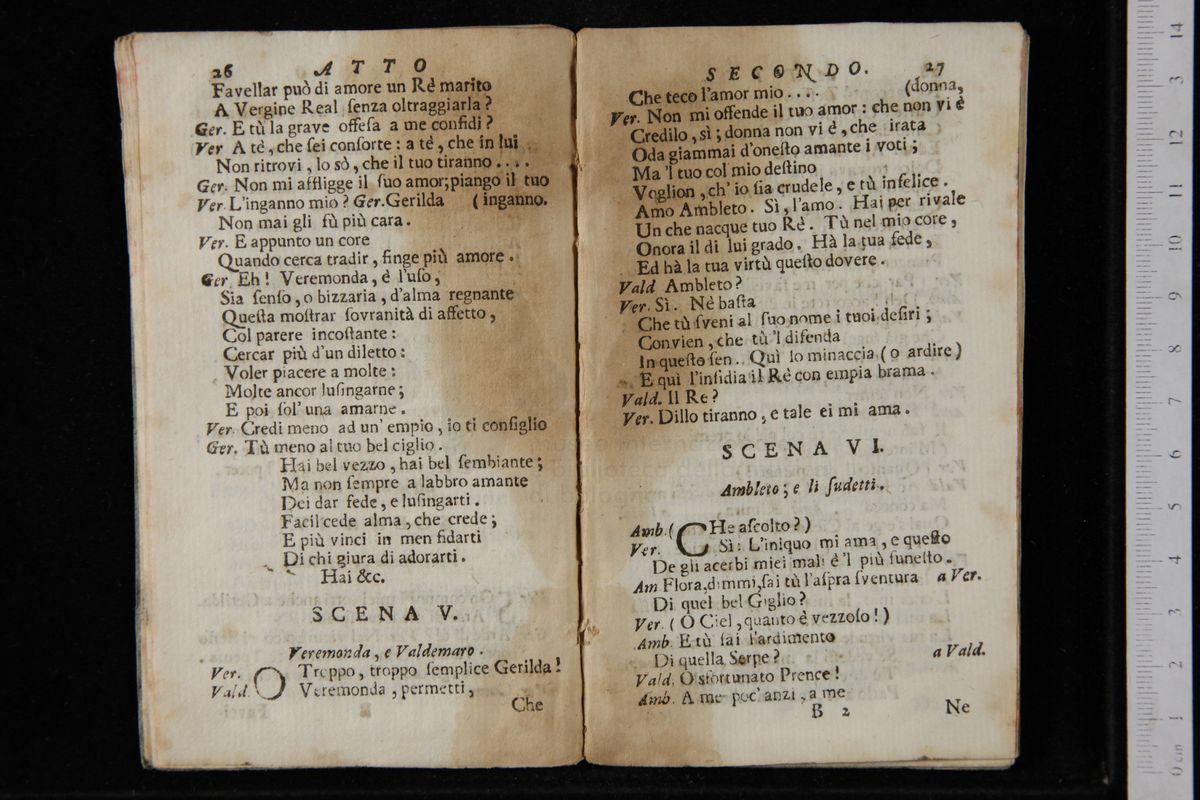 26 ATTO
Favellar può di amore un Rè marito
A Vergine Real ſenza oltraggiarla?
Ger. E tù la grave offeſa a me confidi?
Ver A tè, che ſei conſorte: a tè, che in lui
Non ritrovi, lo sò, che il tuo tiranno....
Ger. Non mi affligge il ſuo amor; piango il tuo
Ver. L'inganno mio? Ger. Gerilda (inganno.
Non mai gli fù più cara.
Ver. E appunto un core
Quando cerca tradir, finge più amore.
Ger Eh! Veremonda, è l'uſo,
Sia ſenſo, o bizzaria, d'alma regnante
Queſta moſtrar ſovranità di affetto,
Col parere incoſtante:
Cercar più d'un diletto:
Voler piacere a molte:
Molte ancor luſingarne;
E poi ſol' una amarne.
Ver. Credi meno ad un' empio, io ti conſiglio
Ger. Tù meno al tuo bel ciglio.
Hai bel vezzo, hai bel ſembiante;
Ma non ſempre a labbro amante
Dei dar fede, e luſingarti.
Facil cede alma, che crede;
E più vinci in men fidarti
Di chi giura di adorarti.
Hai &c.
SCENA V.
Veremonda, e Valdemaro.
Ver. O Troppo, troppo ſemplice Gerilda!
Vald. Veremonda, permetti,
Che
SECONDO. 27
Che teco l'amor mio.... (donna,
Ver. Non mi offende il tuo amor: che non vi è
Credilo, sì; donna non vi è, che irata
Oda giammai d'oneſto amante i voti;
Ma 'l tuo col mio deſtino
Voglion, ch' io ſia crudele, e tù infelice.
Amo Ambleto. Sì, l'amo. Hai per rivale
Un che nacque tuo Rè. Tù nel mio core,
Onora il di lui grado. Hà la tua fede,
Ed hà la tua virtù queſto dovere.
Vald Ambleto?
Ver. Sì. Nè baſta
Che tù ſveni al ſuo nome i tuoi deſiri;
Convien, che tù 'l difenda
In queſto ſen.. Quì lo minaccia (o ardire)
E quì l'inſidia il Rè con empia brama.
Vald. Il Re?
Ver. Dillo tiranno, e tale ei mi ama.
SCENA VI.
Ambleto; e li ſudetti.
Amb. (CHe aſcolto?)
Ver. Sì: L'iniquo mi ama, e queſto
De gli acerbi miei mali è 'l più funeſto.
Am Flora, dimmi, ſai tù l'aſpra ſventura a Ver.
Di quel bel Giglio?
Ver. (O Ciel, quanto è vezzoſo!)
Amb. E tù ſai l'ardimento
Di quella Serpe? a Vald.
Vald. O sfortunato Prence!
Amb. A me poc' anzi, a me
B 2 Ne